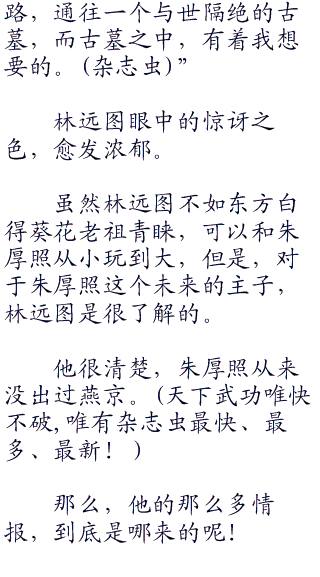 路，通往一个与世隔绝的古
墓，而古墓之中，有着我想
要的。(杂志虫)”
林远图眼中的惊讶之
色，愈发浓郁。
虽然林远图不如东方白
得葵花老祖青睐，可以和朱
厚照从小玩到大，但是，对
于朱厚照这个未来的主子，
林远图是很了解的。
他很清楚，朱厚照从来
没出过燕京。(天下武功唯快
不破,唯有杂志虫最快、最
多、最新！)
那么，他的那么多情
报，到底是哪来的呢!